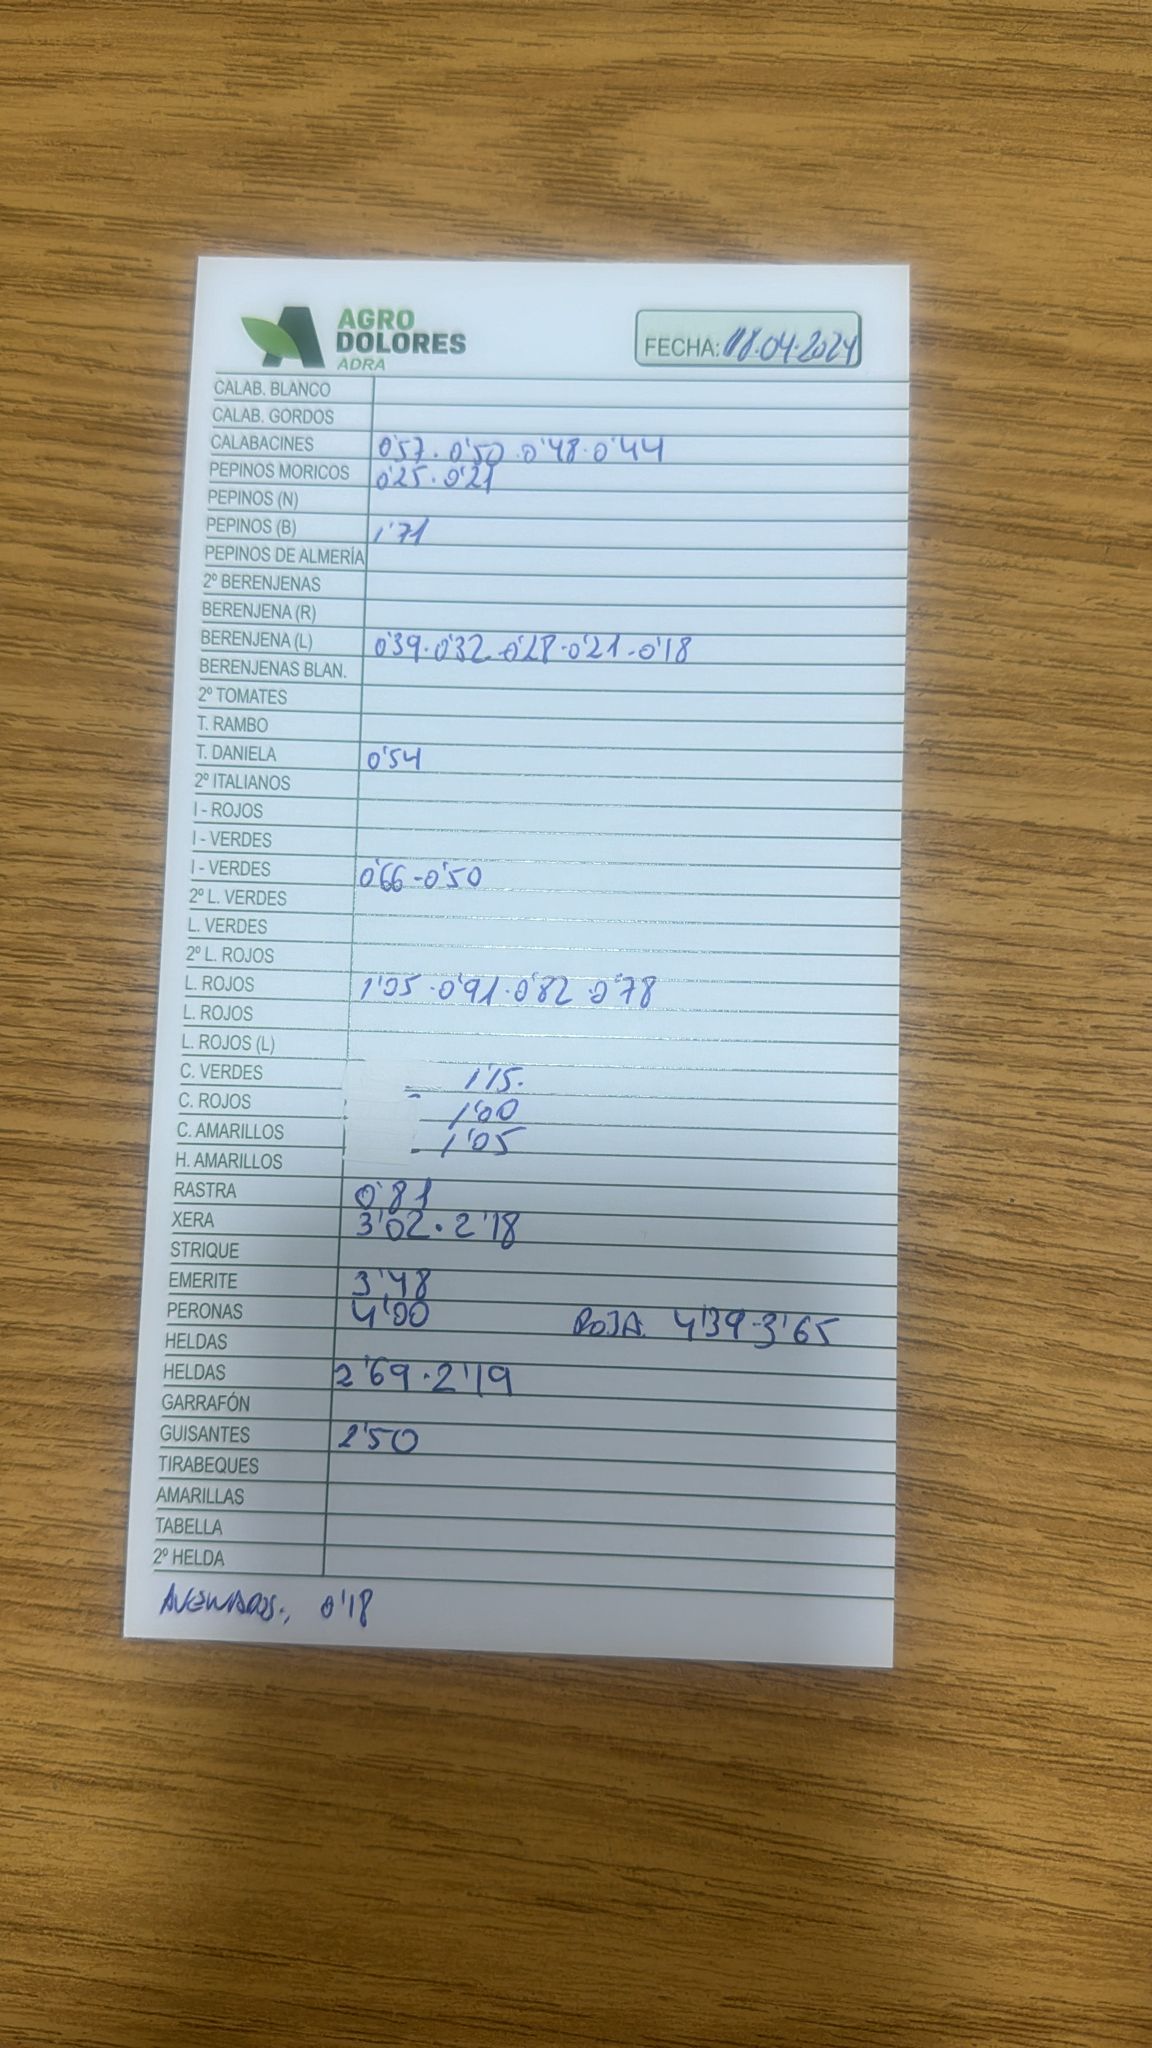 AGRO
DOLORES
ADRA
FECHA: 18.04.2024
CALAB. BLANCO
CALAB. GORDOS
CALABACINES 0'57. 0'50. 0'48. 0'44
PEPINOS MORICOS 0'25. 0'21
PEPINOS (N)
PEPINOS (B) 1'71
PEPINOS DE ALMERÍA
2º BERENJENAS
BERENJENA (R)
BERENJENA (L) 0'39. 0'32. 0'28. 0'21. 0'18
BERENJENAS BLAN.
2º TOMATES
T. RAMBO
T. DANIELA 0'54
2º ITALIANOS
I - ROJOS
I - VERDES
I - VERDES 0'66 - 0'50
2º L. VERDES
L. VERDES
2º L. ROJOS
L. ROJOS 1'05. 0'91. 0'82. 0'78
L. ROJOS
L. ROJOS (L)
C. VERDES 1'15.
C. ROJOS 1'00
C. AMARILLOS 1'05
H. AMARILLOS
RASTRA 0'81
XERA 3'02. 2'18
STRIQUE
EMERITE 3'48
PERONAS 4'00 ROJA. 4'39-3'65
HELDAS
HELDAS 2'69. 2'19
GARRAFÓN
GUISANTES 2'50
TIRABEQUES
AMARILLAS
TABELLA
2º HELDA
0'18